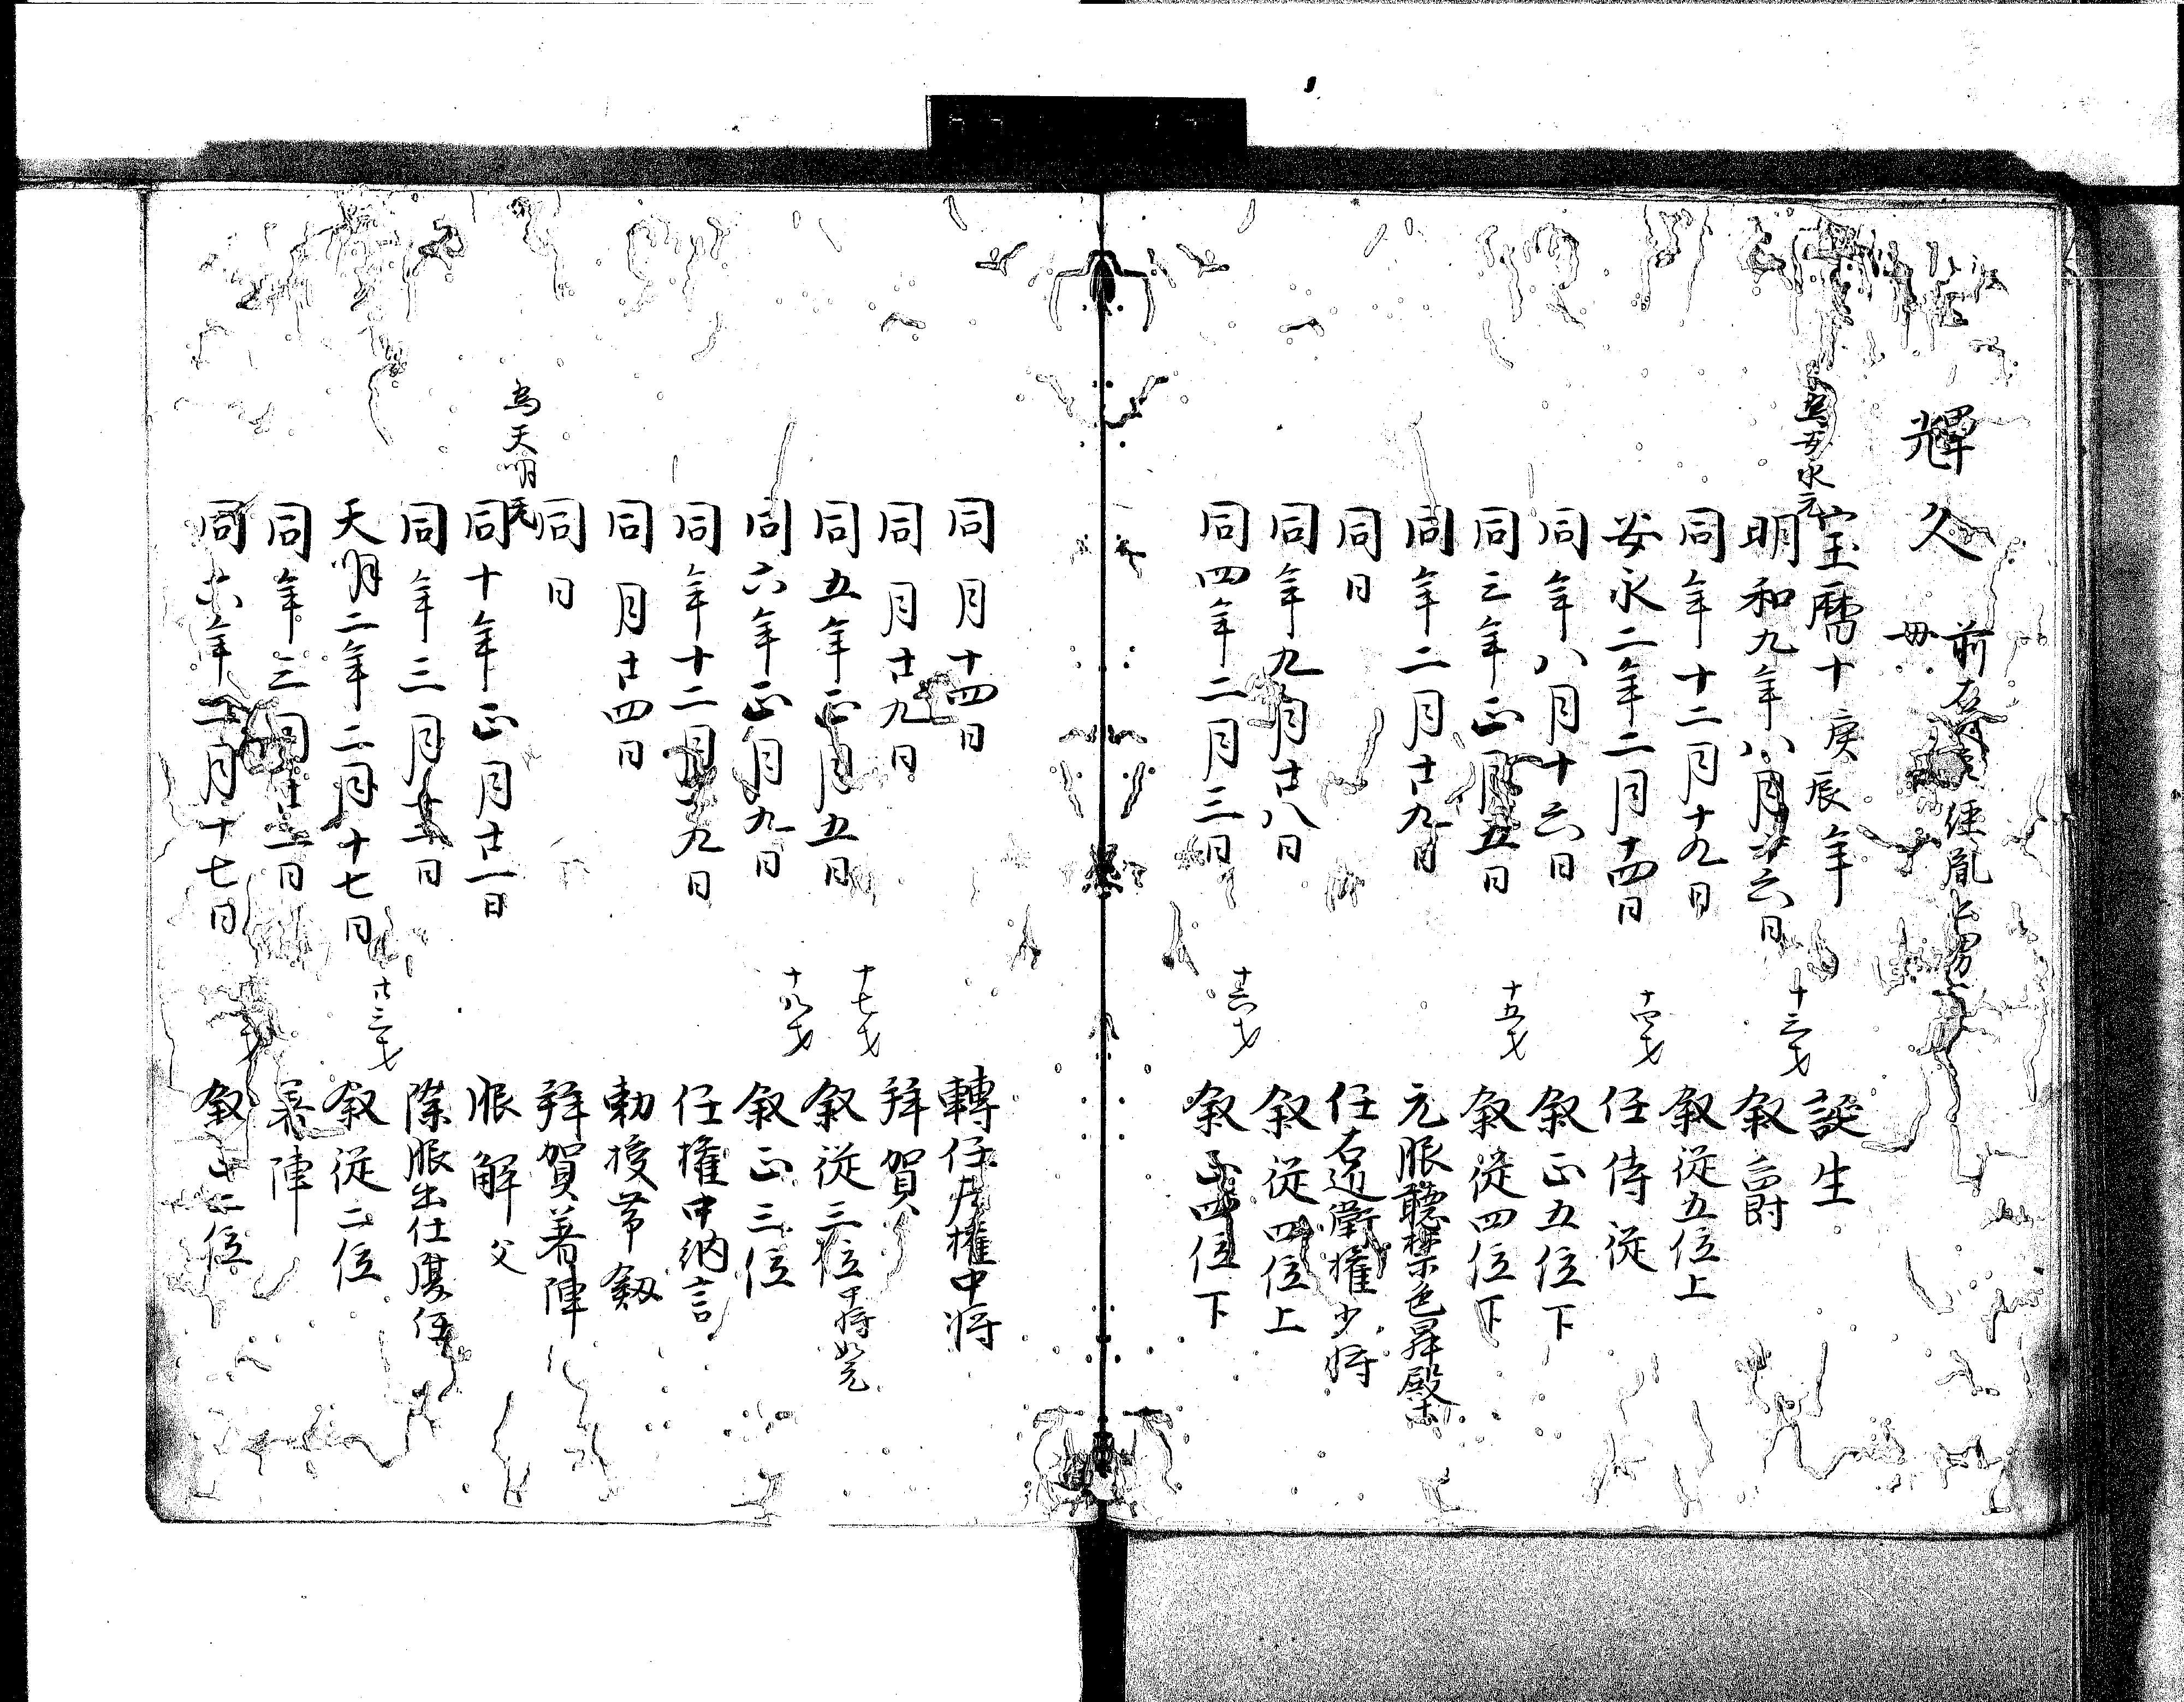 輝久
前右大臣経胤公男
母
宝暦十庚辰年 誕生
為安永元
明和九年八月廿六日 十三才 叙爵
同年十二月十九日 叙従五位上
安永二年二月十四日 十四才 任侍従
同年八月十六日 叙正五位下
同三年正月五日 十五才 叙従四位下
同年二月廿九日 元服聴禁色昇殿
同日 任右近衛権少将
同年九月廿八日 叙従四位上
同四年二月三日 十六才 叙正四位下
同月十四日 轉任左権中将
同月廿九日 拜賀
同五年正月五日 十七才 叙従三位中将如元
同六年正月九日 十八才 叙正三位
同年十二月十九日 任権中納言
同月廿四日 勅授帯剱
同日 拜賀著陣
為天明元
同十年正月廿一日 服解父
同年三月十二日 除服出仕復任
天明二年二月十七日 廿三才 叙従二位
同年三月廿二日 著陣
同六年二月十七日 叙正二位